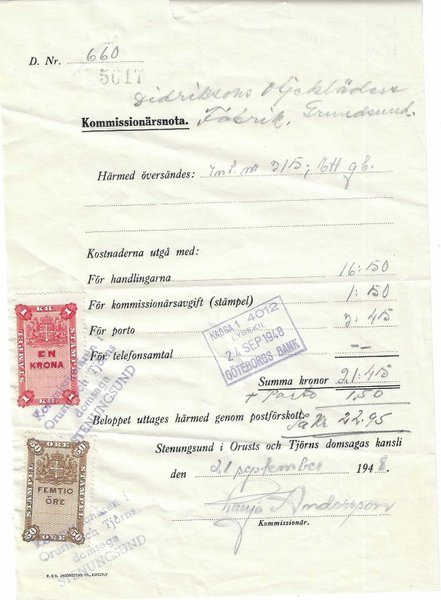 D. Nr. 660
5617
Didriksons Oljekläders
Kommissionärsnota. Fabrik, Grundsund.
Härmed översändes:
Kostnaderna utgå med:
För handlingarna 16:50
För kommissionärsavgift (stämpel) 1:50
För porto 3:45
För telefonsamtal —
Summa kronor 21:45
+ Porto 1.50
Beloppet uttages härmed genom postförskott. Sa Kr 22.95
Stenungsund i Orusts och Tjörns domsagas kansli
den 21 september 1948.
Andersson
Kommissionär.
KASSA 1 4012
LYSEKIL
24 SEP 1948
GÖTEBORGS BANK
1 KR 1
STÄMPEL STÄMPEL
EN
KRONA
1 1
Kommissionären i
Orusts och Tjörns
domsaga
STENUNGSUND
50 ÖRE 50
STÄMPEL STÄMPEL
FEMTIO
ÖRE
50 50
Kommissionären i
Orusts och Tjörns
domsaga
STENUNGSUND